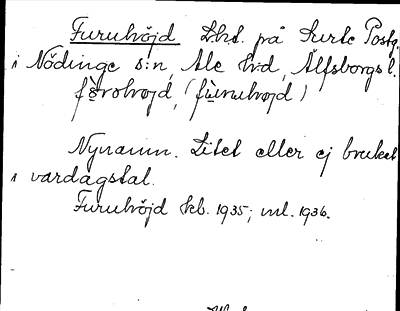 Furuhöjd Lht. på Surte Postg.
i Nödinge s:n, Ale h:d, Älfsborgs l.
fɵ̀rohøjd, (fùruhøjd)
Nynamn. Litet eller ej brukat
i vardagstal.
Furuhöjd kb. 1935; ml. 1936.